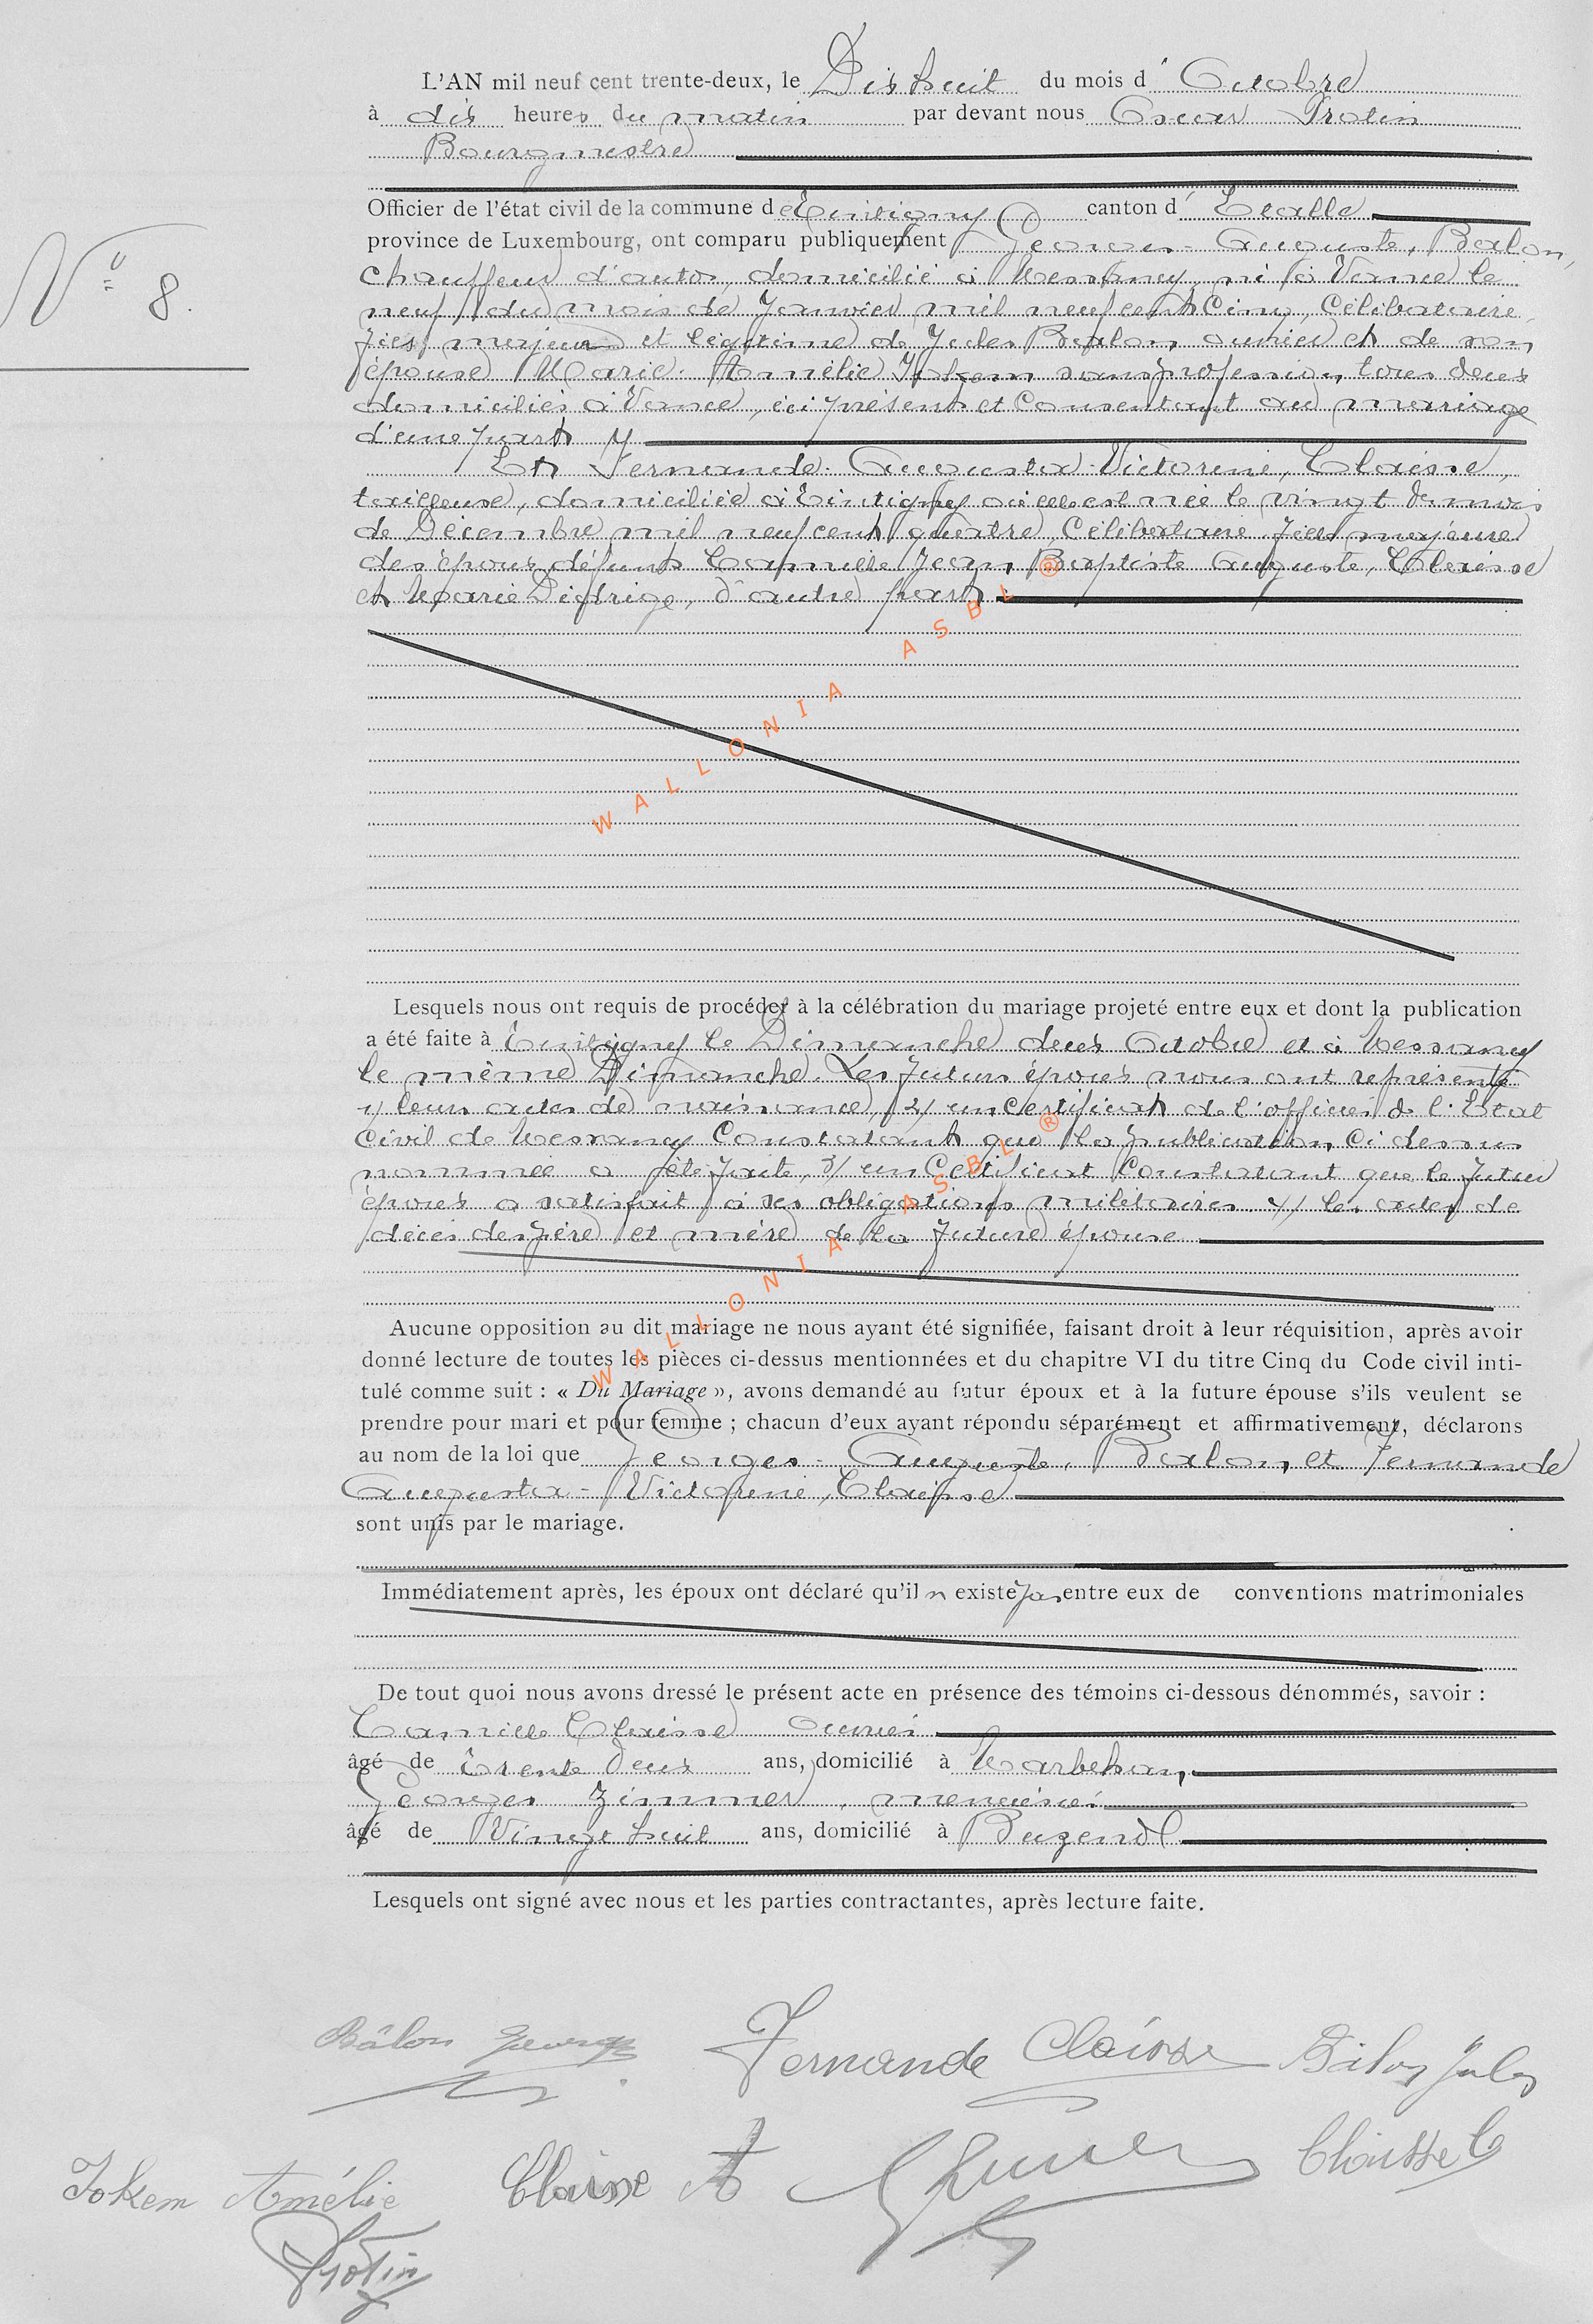 L'AN mil neuf cent trente-deux, le Dix huit du mois d' Octobre
à dix heures du matin par devant nous Oscar Protin
Bourgmestre
Officier de l'état civil de la commune de Tintigny canton d' Etalle
province de Luxembourg, ont comparu publiquement Georges-Auguste, Balon,
chauffeur d'autos, domicilié à Messancy, né à Vance le
N° 8.
neuf du mois de Janvier mil neuf cent Cinq, Célibataire,
fils majeur et légitime de Jules Balon, ouvrier et de son
épouse Marie-Amélie Jokem sans profession, tous deux
domiciliés à Vance, ici présents et Consentant au mariage
d'une part
Et Fernande-Augusta-Victorine, Claisse,
tailleuse, domiciliée à Tintigny où elle est née le vingt du mois
de Décembre mil neuf cent quatre, Célibataire fille majeure
des époux défunts Camille Jean Baptiste Auguste, Claisse
et Marie, d'autre part
Lesquels nous ont requis de procéder à la célébration du mariage projeté entre eux et dont la publication
a été faite à Tintigny le Dimanche deux Octobre et à Messancy
le même Dimanche. Les futurs époux nous ont représenté
1/ leurs actes de naissance, 2/ un certificat de l'officier de l'Etat
Civil de Messancy Constatant que la publication Ci dessus
nommée a été faite, 3/ un Certificat Constatant que le futur
époux a satisfait à ses obligations militaires. 4/ les actes de
décès des père et mère de la future épouse
Aucune opposition au dit mariage ne nous ayant été signifiée, faisant droit à leur réquisition, après avoir
donné lecture de toutes les pièces ci-dessus mentionnées et du chapitre VI du titre Cinq du Code civil inti-
tulé comme suit : « Du Mariage », avons demandé au futur époux et à la future épouse s'ils veulent se
prendre pour mari et pour femme ; chacun d'eux ayant répondu séparément et affirmativement, déclarons
au nom de la loi que Georges-Auguste, Balon, et Fernande
Augusta-Victorine, Claisse
sont unis par le mariage.
Immédiatement après, les époux ont déclaré qu'il n existe pas entre eux de conventions matrimoniales
De tout quoi nous avons dressé le présent acte en présence des témoins ci-dessous dénommés, savoir :
Camille Claisse ouvrier
âgé de trente deux ans, domicilié à Marbehan,
Georges Zimmer, menuisier
âgé de Vingt huit ans, domicilié à Buzenol
Lesquels ont signé avec nous et les parties contractantes, après lecture faite.
Bâlon Georges Fernande Claisse Bâlon Jules
Jokem Amélie Claisse A Claisse C
Protin
WALLONIA ASBL ®
WALLONIA ASBL ®